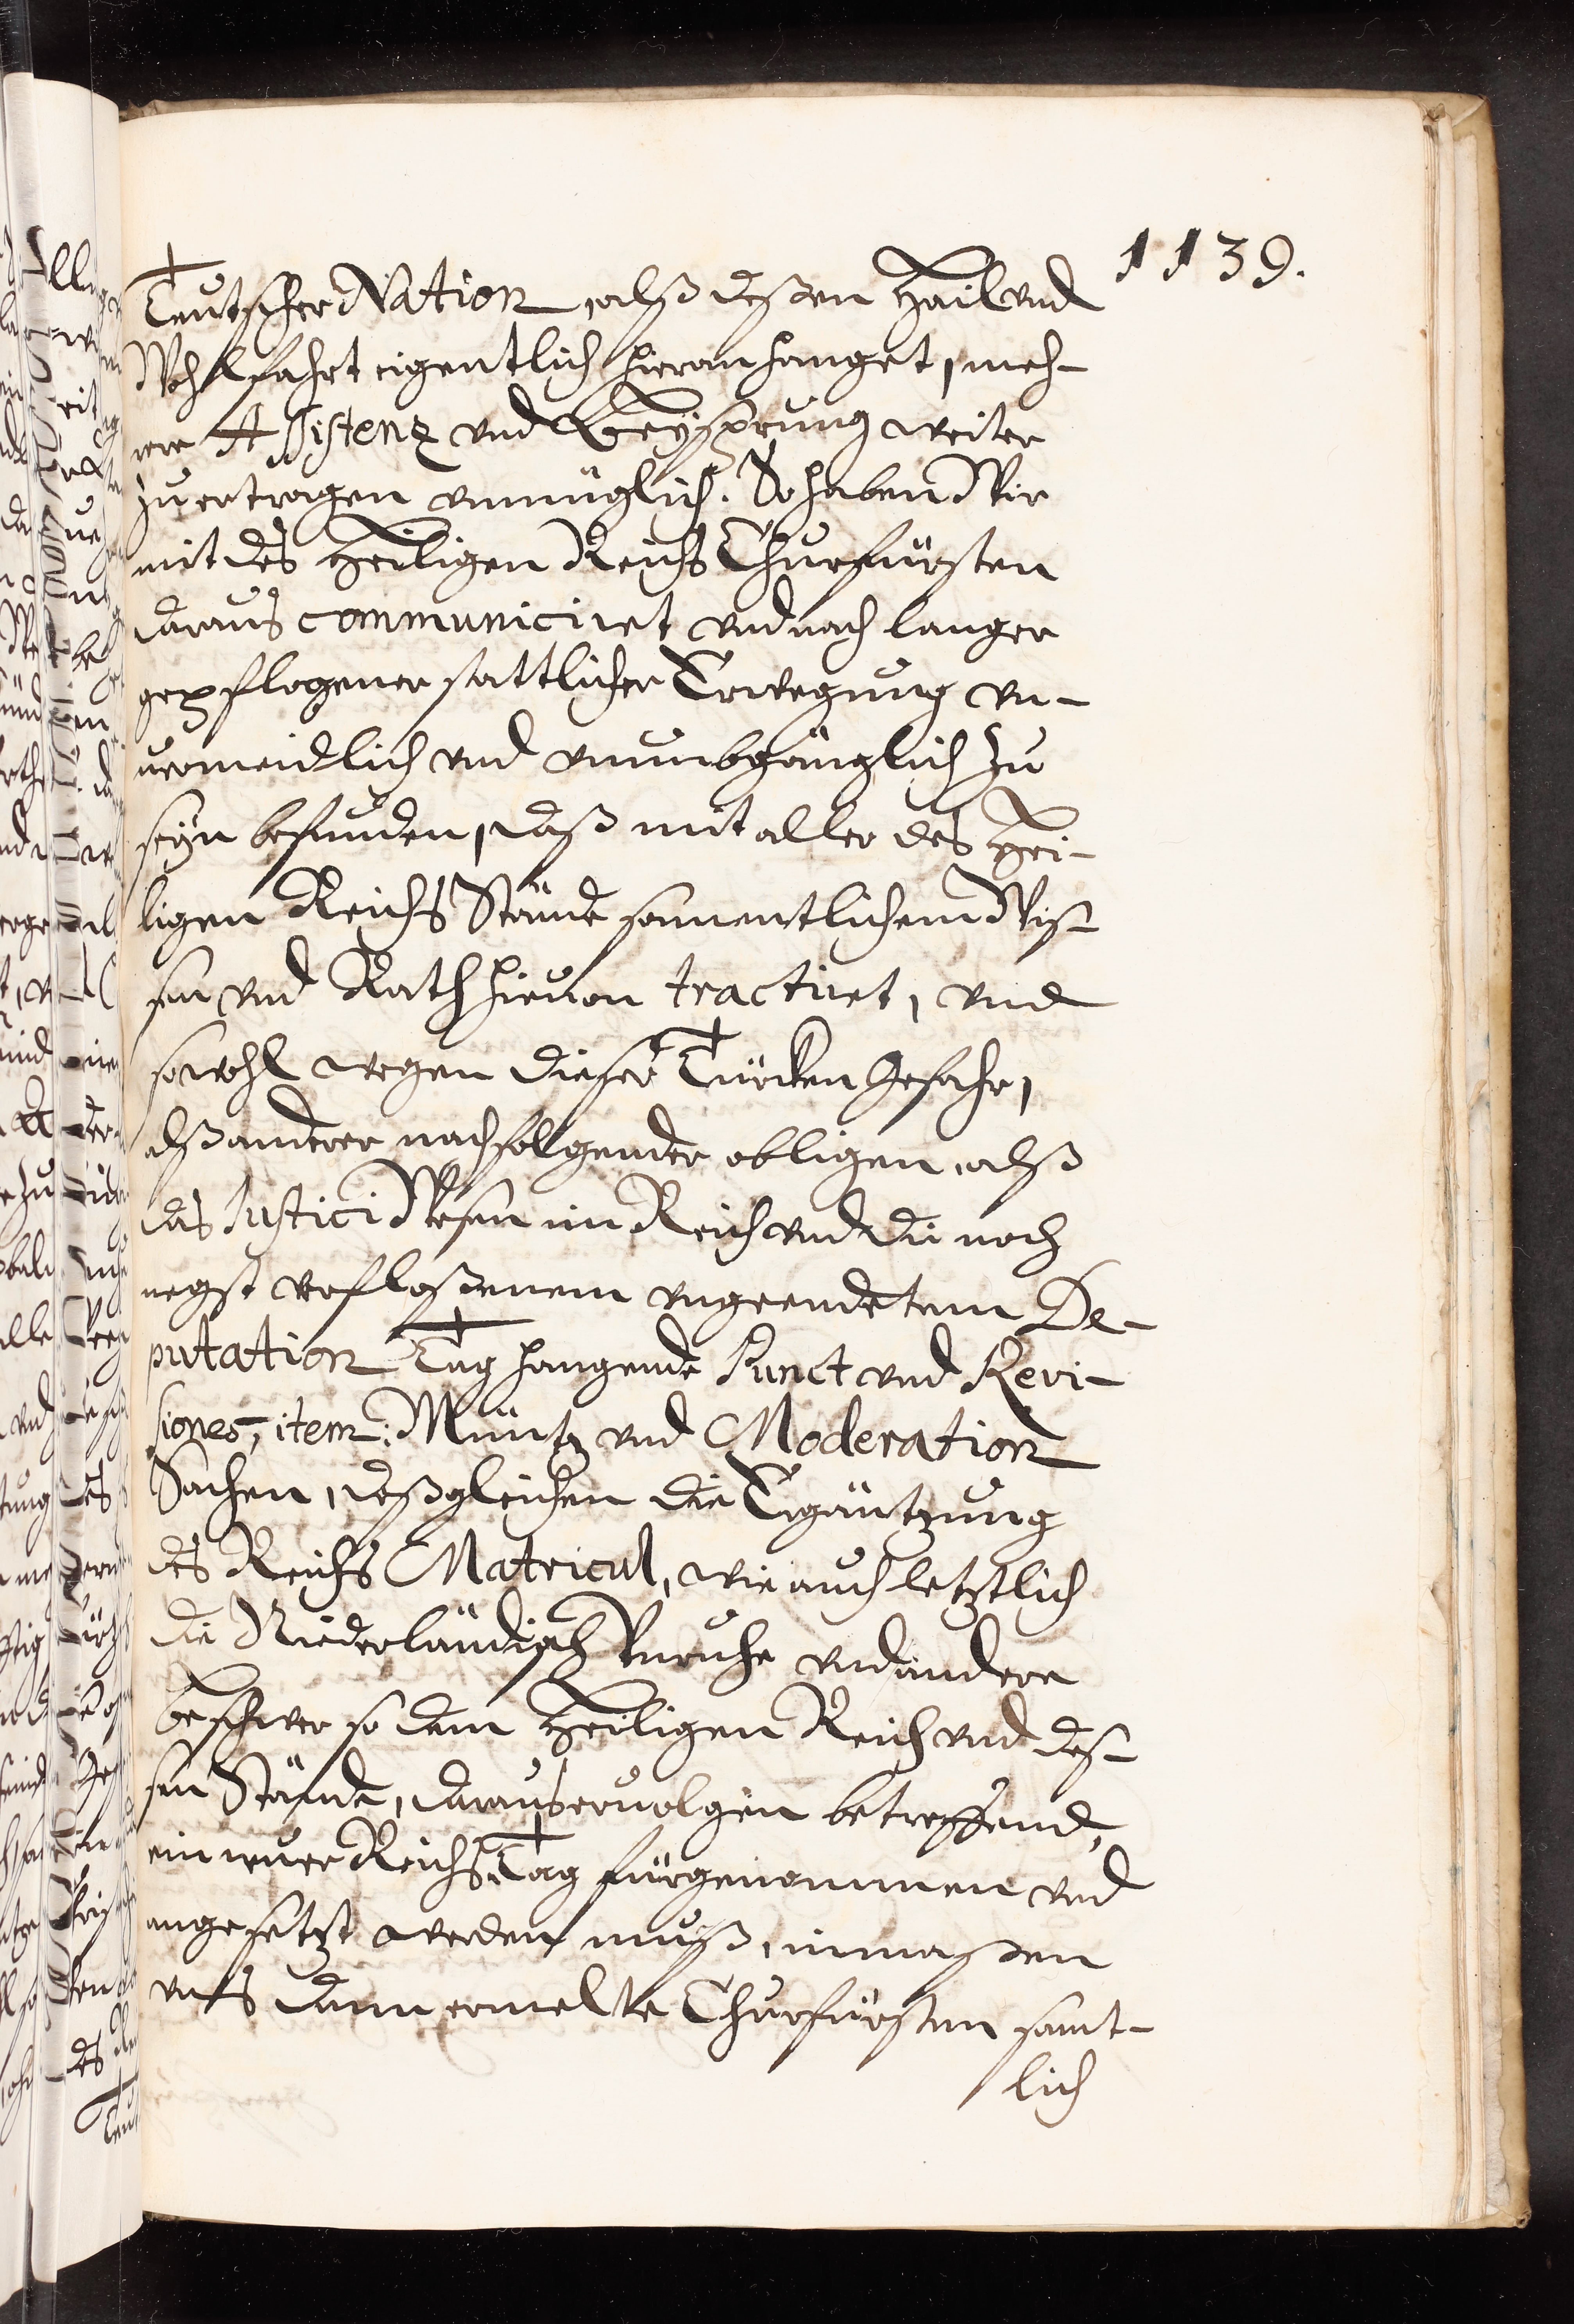 1139.
Teutscher Nation, alß deßen Hail vnd
Wohlfahrt eigentlich hieran hanget, meh-
rere Assistenz vnd Beÿsprung weiter
zuertragen vnmüglich. So haben Wir
mit des Heiligen Reichs Churfürsten
daraus communiciret vnd nach langer
gepflogener stattlicher Erwegung vn-
uermeidlich vnd vnumbgänglich zu
seÿn befunden, daß mit aller des Hei-
ligen Reichs Stände samentlichem Wiß-
sen vnd Rath hieuon tractiret, vnd
sowohl wegen dieser Türcken Gefahr,
alß anderer nachfolgender obligen, alß
das Justici Wesen im Reich vnd die noch
negst verfloßenem vngeendetem De-
putation Tag hangende Punct vnd Revi-
siones, item: Müntz vnd Moderation
Sachen, deßgleichen die Ergäntzung
des Reichs Matricul, wie auch letztlich
die Niederländisch Vnruhe vnd andere
beschwer so dem Heiligen Reich vnd deß-
sen Stände, daraus eruolgen betreffend,
ein neuer Reichs Tag fürgenommen vnd
angesetzt werden muß, inmaßen
vnß dann ermelte Churfürsten samt-
lich